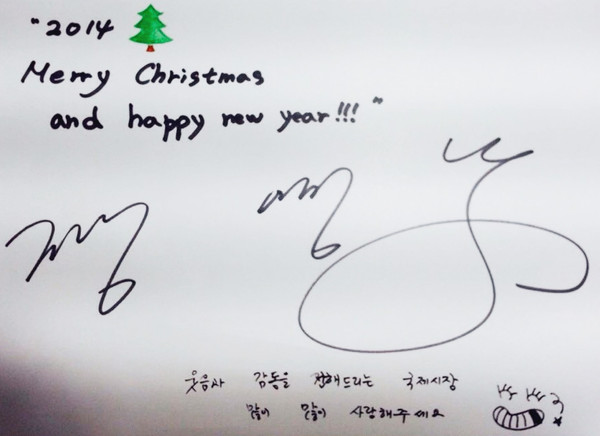 "2014
Merry Christmas
and happy new year!!!"
웃음과 감동을 전해드리는 국제시장
많이 많이 사랑해주세요